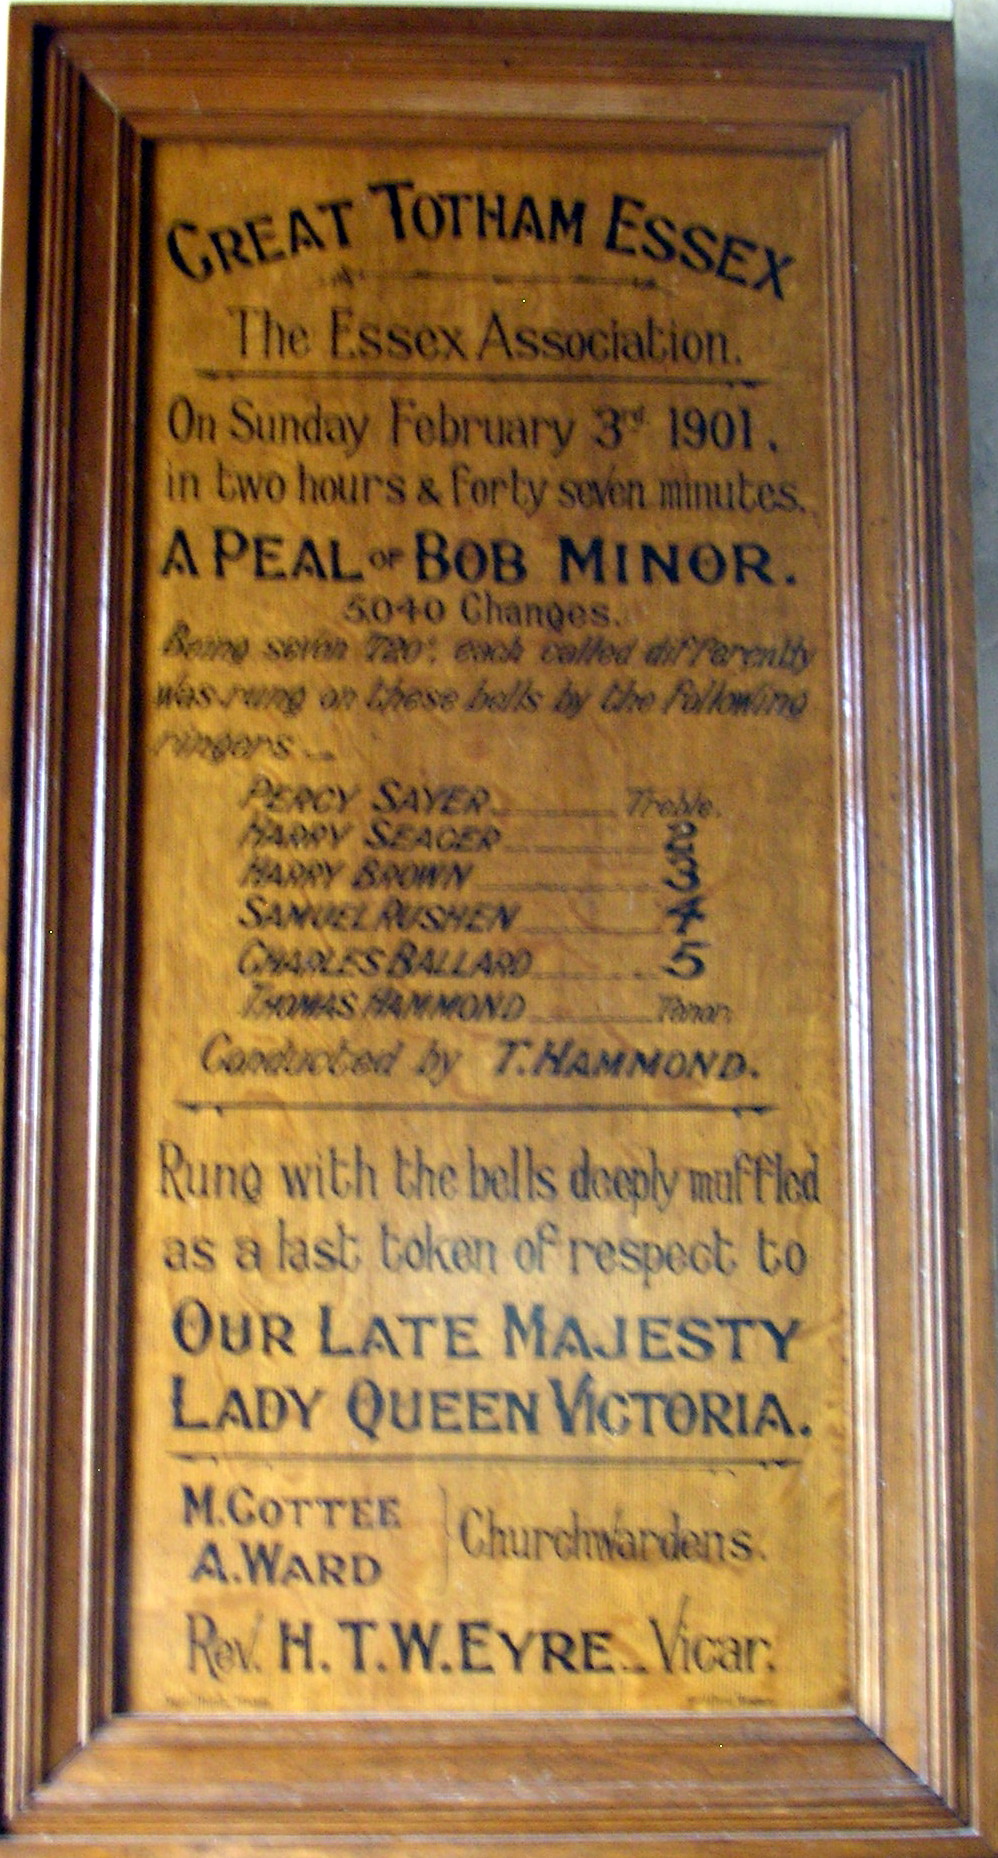 GREAT TOTHAM ESSEX
The Essex Association.
On Sunday February 3rd 1901.
in two hours & forty seven minutes.
A PEAL OF BOB MINOR.
5040 Changes.
Being seven 720s, each called differently
was rung on these bells by the following
ringers
PERCY SAYER Treble.
HARRY SEAGER 2
HARRY BROWN 3
SAMUEL RUSHEN 4
CHARLES BALLARD 5
THOMAS HAMMOND Tenor.
Conducted by T. HAMMOND.
Rung with the bells deeply muffled
as a last token of respect to
OUR LATE MAJESTY
LADY QUEEN VICTORIA.
M. COTTEE
A. WARD
Churchwardens.
Rev. H. T. W. EYRE Vicar.